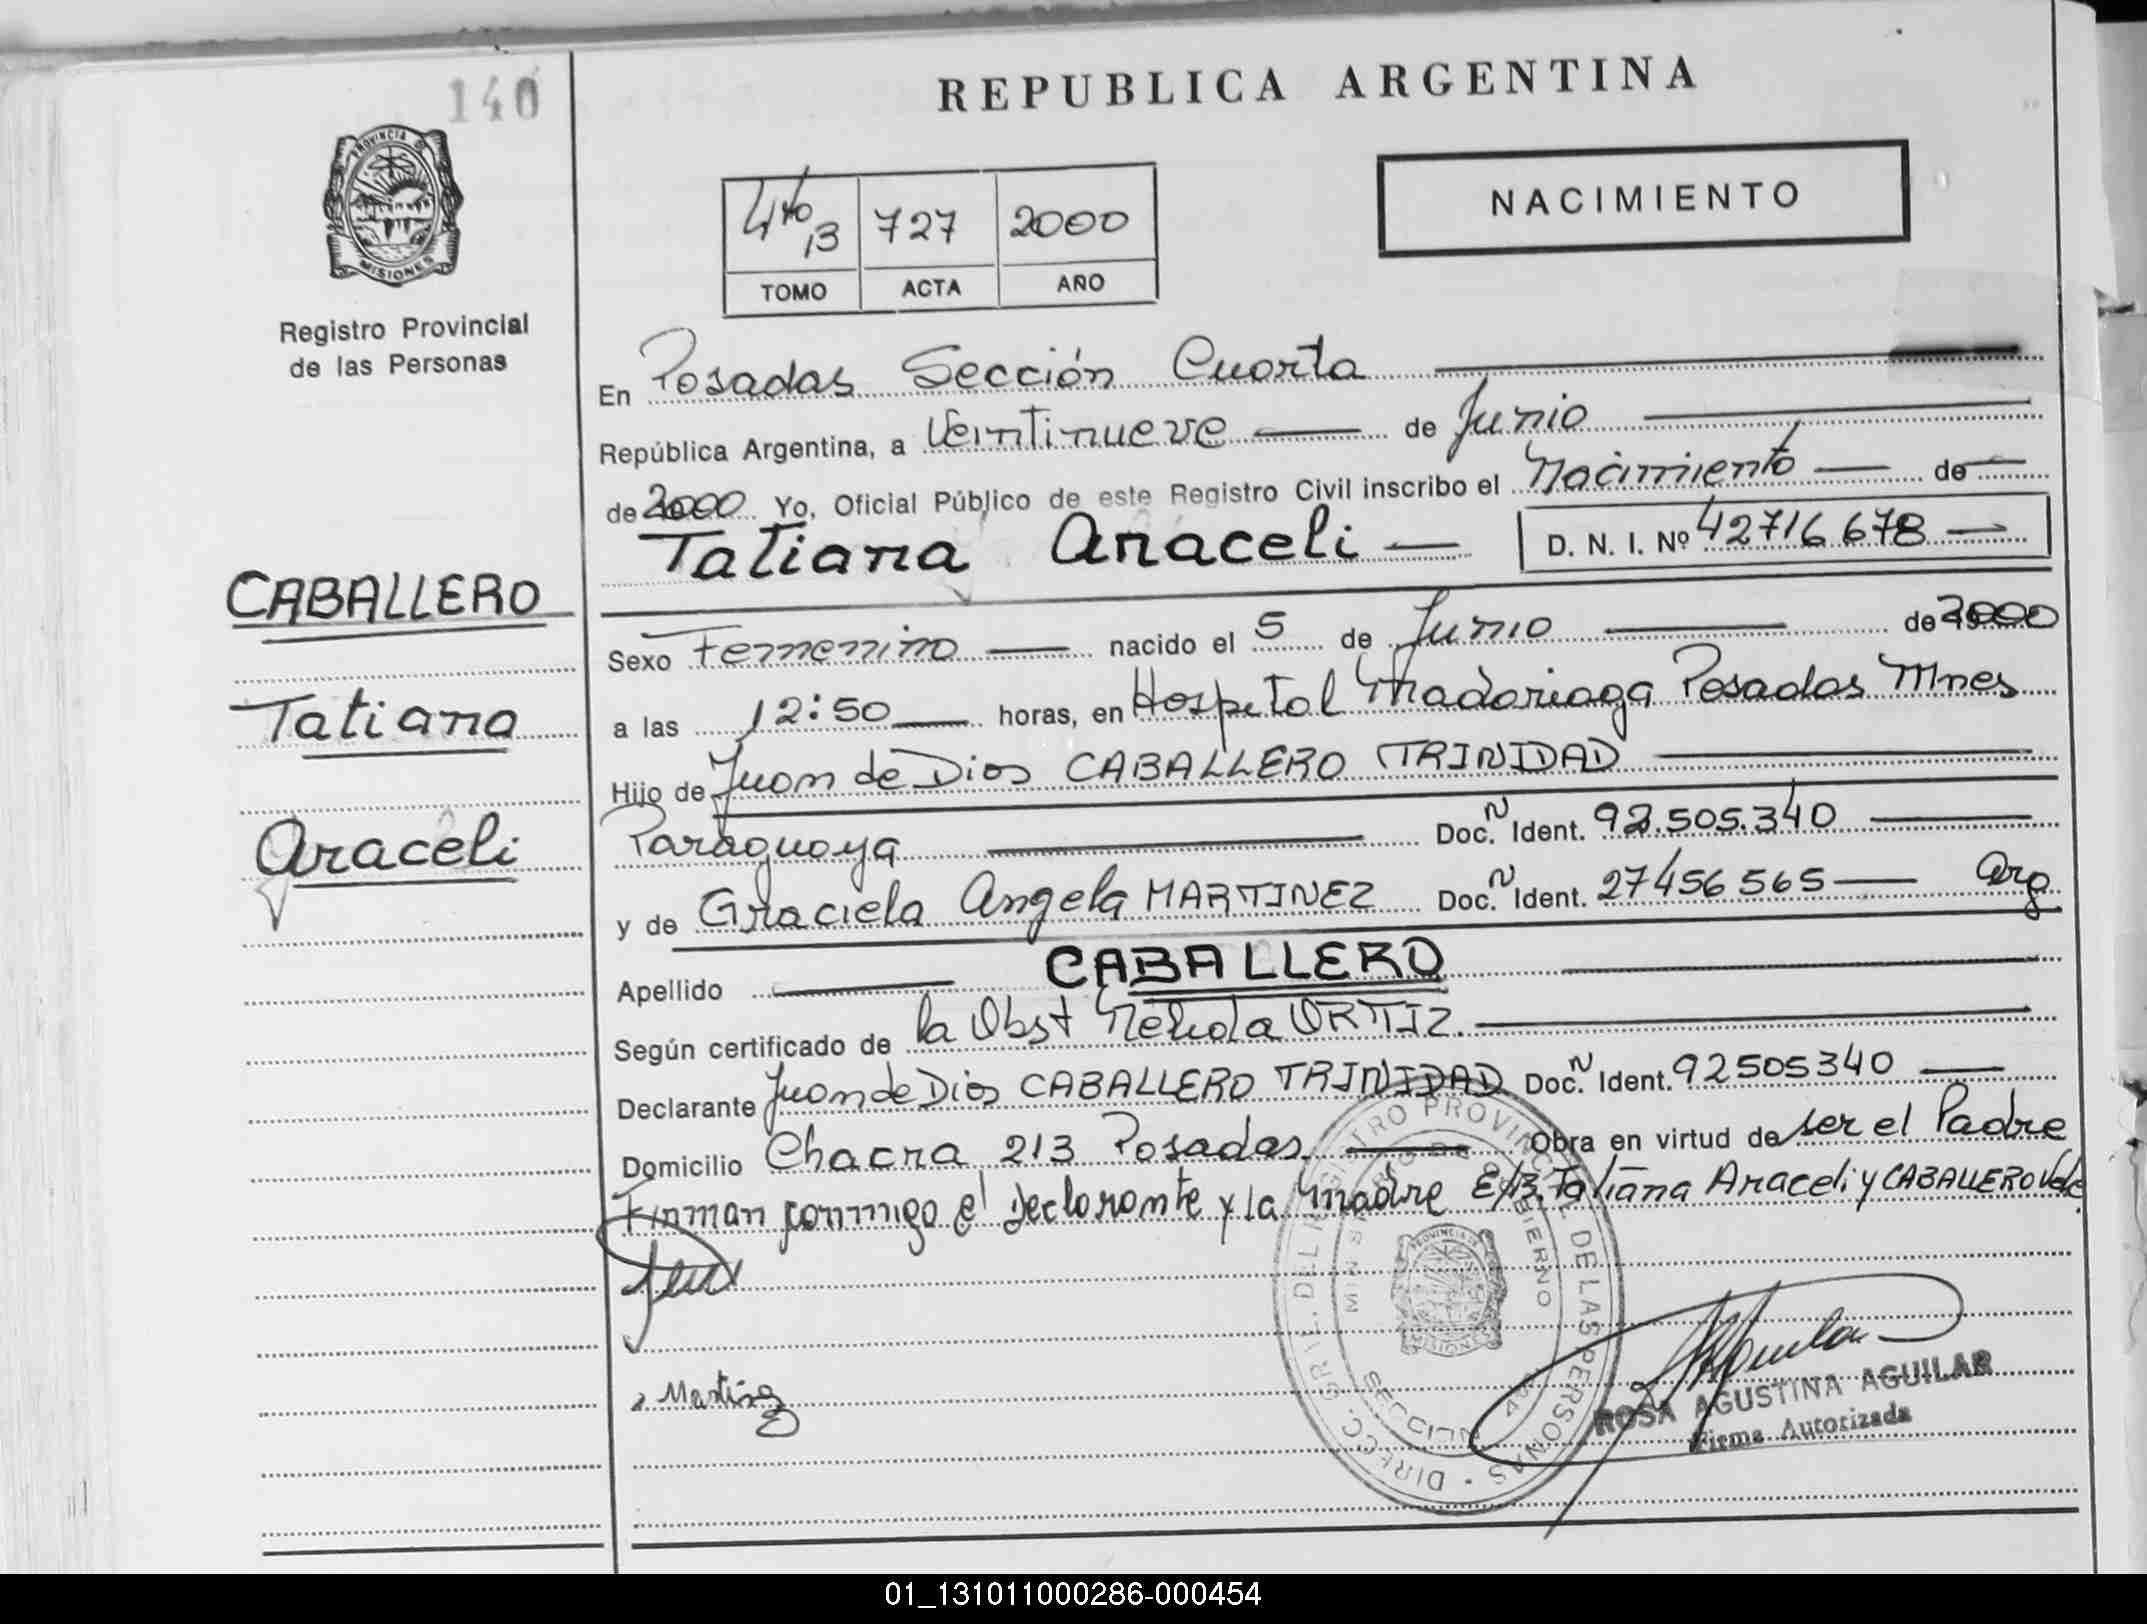 140
REPUBLICA ARGENTINA
PROVINCIA DE
MISIONES
Registro Provincial
de las Personas
NACIMIENTO
4to 13 727 2000
TOMO ACTA AÑO
En Posadas Sección Cuarta
República Argentina, a Veintinueve de Junio
de 2000 Yo, Oficial Público de este Registro Civil inscribo el Nacimiento de
Tatiana Araceli D. N. I. Nº 42716678
CABALLERO
Tatiana
Araceli
Sexo Femenino nacido el 5 de Junio de 2000
a las 12:50 horas, en Hospital Madariaga Posadas Mnes
Hijo de Juan de Dios CABALLERO TRINIDAD
Paraguaya Doc. N Ident. 92.505.340
y de Graciela Angela MARTINEZ Doc. N Ident. 27456565 Arg
Apellido CABALLERO
Según certificado de la Obst ORTIZ.
Declarante Juan de Dios CABALLERO TRINIDAD Doc. N Ident. 92505340
Domicilio Chacra 213 Posadas. Obra en virtud de ser el Padre
Firman conmigo el Declarante y la Madre E/B. Tatiana Araceli y CABALLERO Vale.
Martinez
DIRECC. GRAL. DEL REGISTRO PROVINCIAL DE LAS PERSONAS
MINISTERIO DE GOBIERNO
SECCION 4ª
ROSA AGUSTINA AGUILAR
Firma Autorizada
01_131011000286-000454